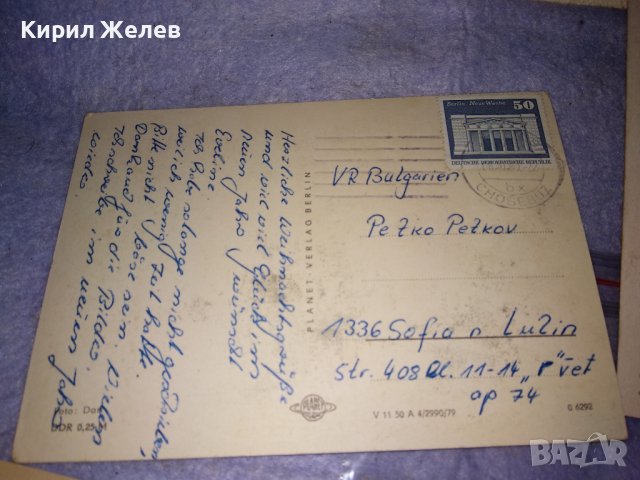 Кирил Желев
Herzliche Weihnachtsgrüße
und viel viel Glück im
neuen Jahr wünscht
Eveline.
habe solange nicht geschrieben,
weil ich wenig Zeit hatte.
Bitte nicht böse sein. Vielen
Dank auch für die Bilder.
Ich schreibe im neuen Jahr
wieder.
Foto:
DDR 0,25 M
PLANET-VERLAG BERLIN
Berlin · Neue Wache
50
DEUTSCHE DEMOKRATISCHE REPUBLIK
bx
VR Bulgarien
Petko Petkov
1336 Sofia n Lulin
Str. 408 Bl. 11-14 „P"vet
ap 74
PLANET
V 11 50 A 4/2990/79
0 6292
bazar.bg